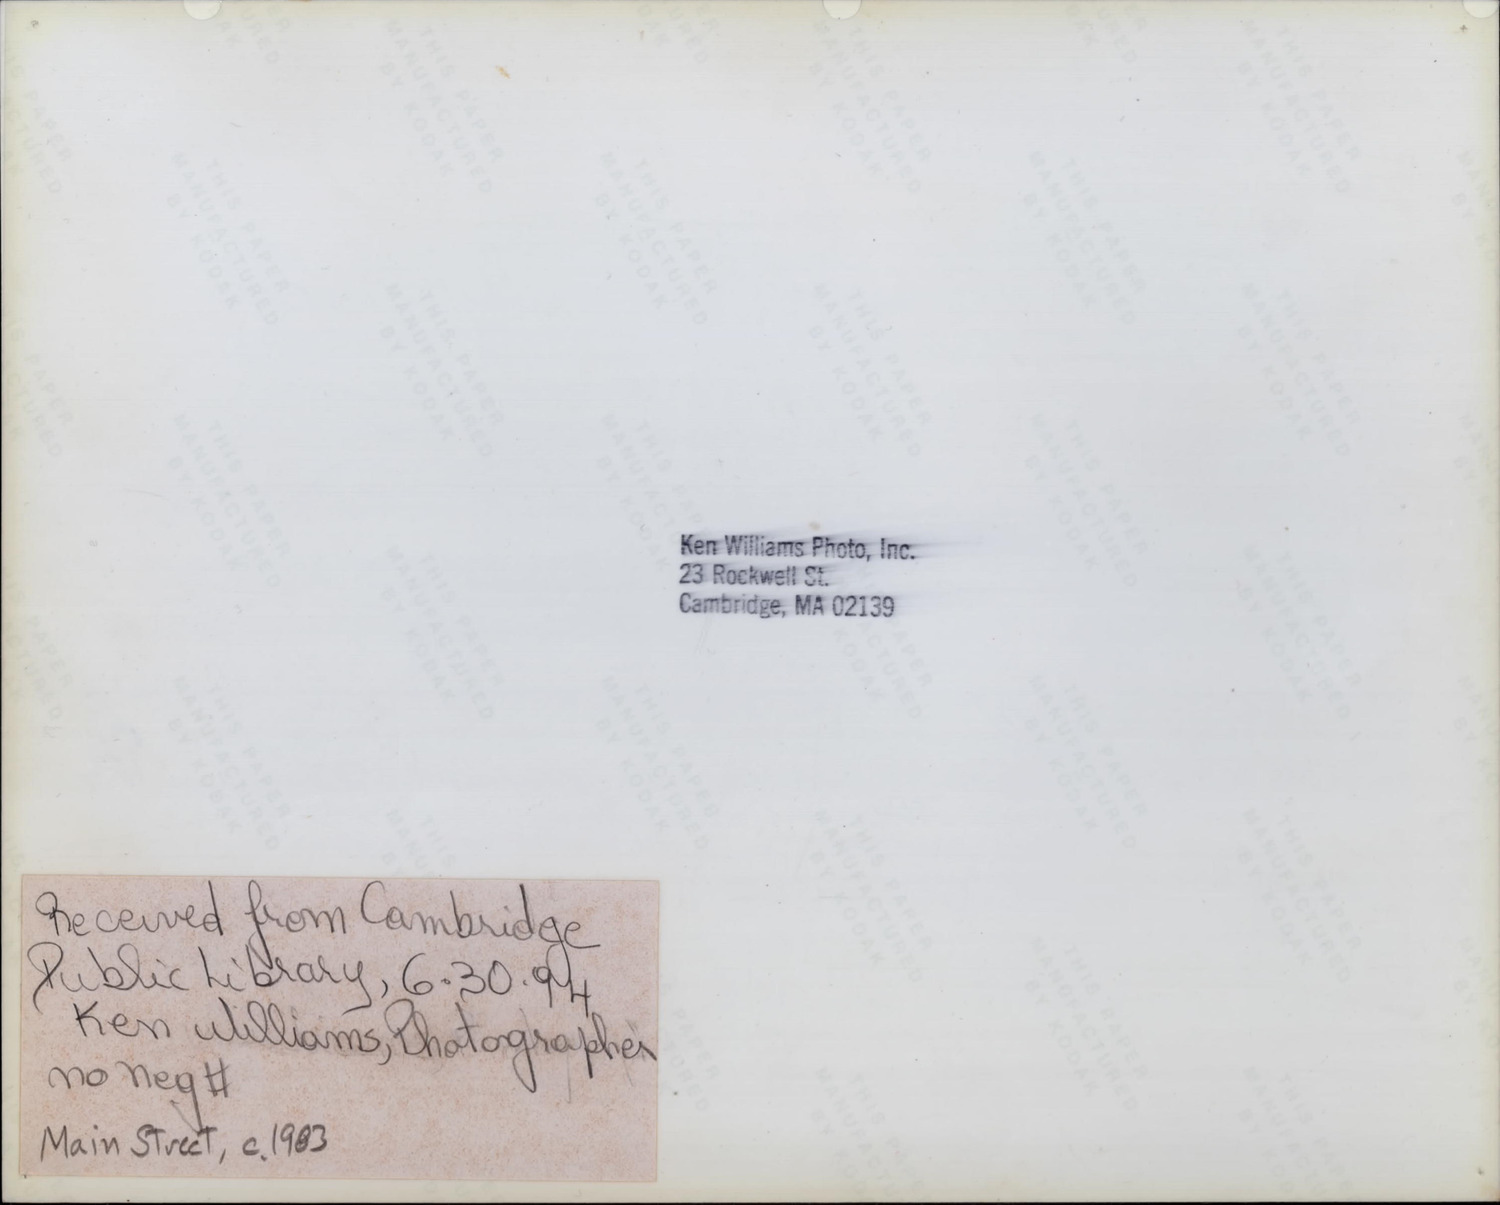 Ken Williams Photo, Inc.
23 Rockwell St.
Cambridge, MA 02139
Received from Cambridge
Public Library, 6.30.94
Ken Williams, Photographer
no neg #
Main Street, c. 1983
THIS PAPER
MANUFACTURED
BY KODAK